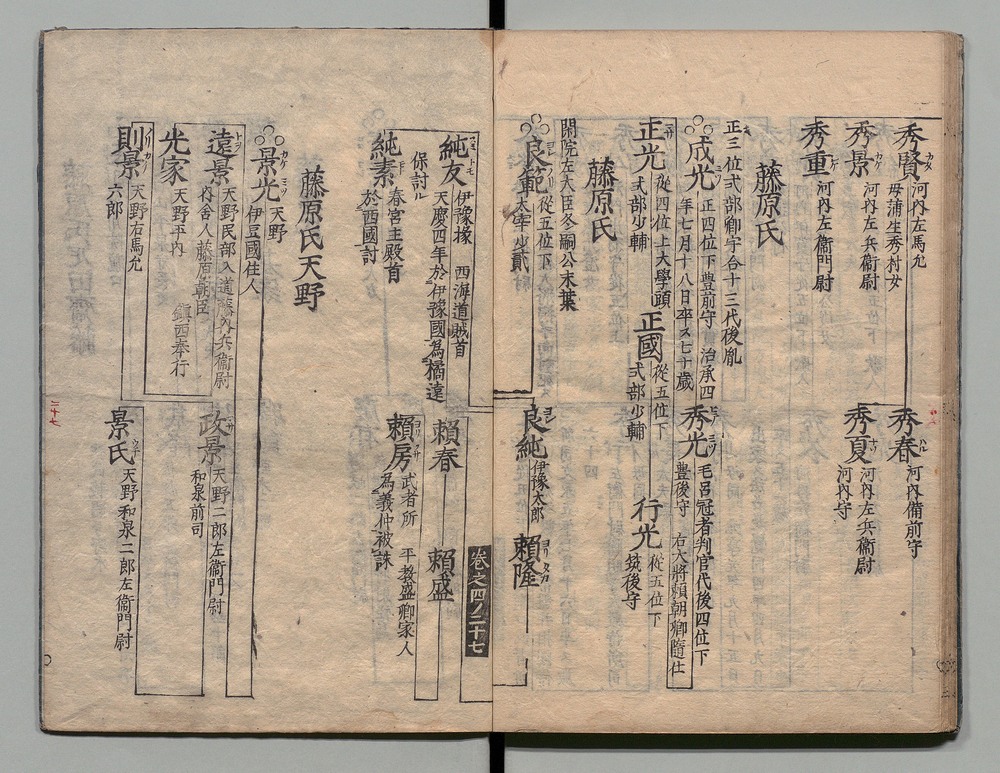 秀賢 河内左馬允
母蒲生秀村女
秀春 河内備前守
秀景 河内左兵衞尉
秀夏 河内左兵衞尉
河内守
秀重 河内左衞門尉
藤原氏
正三位式部卿宇合十三代後胤
成光 正四位下豊前守 治承四
年七月十八日卒ス七十歳
秀光 毛呂冠者判官代後四位下
豊後守 右大將頼朝卿隨仕
正光 從四位上大學頭
式部少輔
正國 從五位下
式部少輔
行光 從五位下
筑後守
藤原氏
閑院左大臣冬嗣公末葉
良範 從五位下
太宰少貳
良純 伊豫太郎
頼隆
卷之四ノ二十七
純友 伊豫掾 西海道賊首
天慶四年於伊豫國為橘遠
保討ル
頼春
頼盛
純素 春宮主殿首
於西國討
頼房 武者所 平教盛卿家人
為義仲被誅
藤原氏天野
景光 天野
伊豆國住人
遠景 天野民部入道藤内兵衞尉
内舍人藤原朝臣
鎮西奉行
政景 天野二郎左衞門尉
和泉前司
光家 天野平内
則景 天野右馬允
六郎
景氏 天野和泉二郎左衞門尉